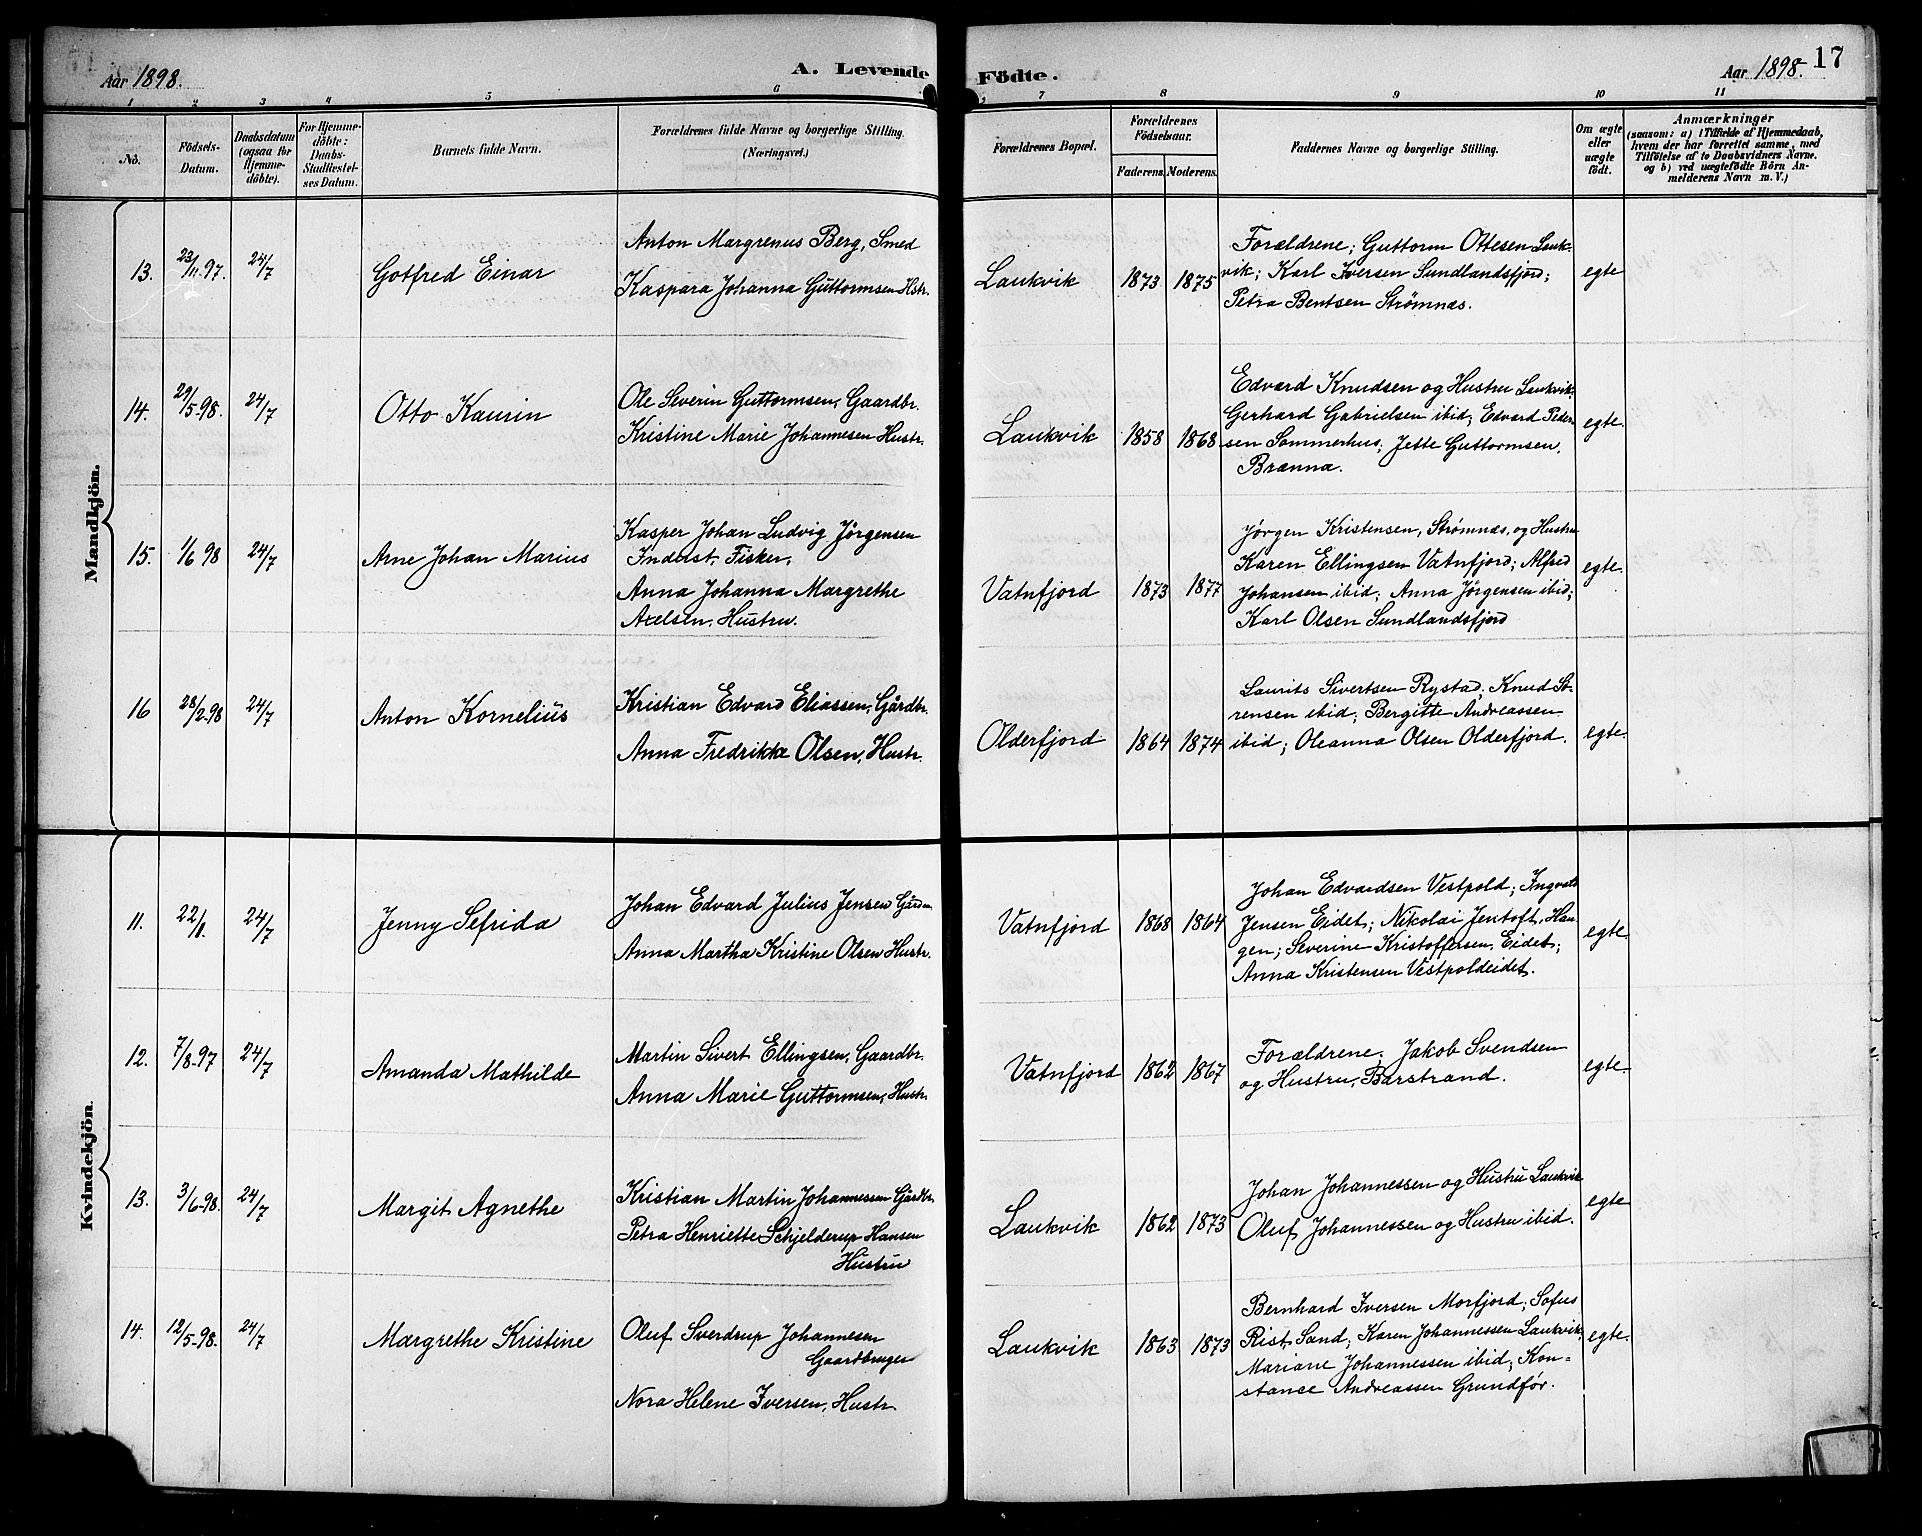 Aar 1898.
A. Levende Födte.
Aar 1898.
17
1 2 3 4 5 6 7 8 9 10 11
No.
Födsels-
Datum.
Daabsdatum
(ogsaa for
Hjemme-
döbte).
For Hjemme-
döbte:
Daabs-
Stadfæstel-
ses Datum.
Barnets fulde Navn.
Forældrenes fulde Navne og borgerlige Stilling.
(Næringsvei.)
Forældrenes Bopæl.
Forældrenes
Födselsaar.
Faderens. Moderens.
Faddernes Navne og borgerlige Stilling.
Om ægte
eller
uægte
födt.
Anmærkninger
(saasom: a) i Tilfælde af Hjemmedaab,
hvem der har forrettet samme, med
Tilföielse af to Daabsvidners Navne.
og b) ved uægtefödte Börn An-
melderens Navn m. V.)
Mandkjön.
13. 23/11-97. 24/7 Gotfred Einar
Anton Margrenus Berg, Smed
Kaspara Johanna Guttormsen Hstr.
Laukvik 1873 1875
Forældrene; Guttorm Ottesen Lauk-
vik; Karl Iversen Sundlandsfjord;
Petra Bentsen Strømnæs.
egte
14. 29/5-98. 24/7 Otto Kaurin
Ole Severin Guttormsen, Gaardbr.
Kristine Marie Johannesen Hustr.
Laukvik 1858 1868
Edvard Knudsen og Hustru Laukvik
Gerhard Gabrielsen ibid; Edvard Peder-
sen Sommerhus; Jette Guttormsen,
Brænna.
egte.
15. 1/6 98 24/7 Arne Johan Marius
Kasper Johan Ludvig Jörgensen
Inderst, Fisker,
Anna Johanna Margrethe
Axelsen, Hustru.
Vatnfjord 1873 1877
Jörgen Kristensen, Strømnæs, og Hustru
Karen Ellingsen Vatnfjord; Alfred
Johansen ibid; Anna Jörgensen ibid;
Karl Olsen Sundlandsfjord
egte.
16 28/2-98 24/7 Anton Kornelius
Kristian Edvard Eliassen, Gårdbr.
Anna Fredrikke Olsen, Hustr.
Olderfjord 1864 1874
Laurits Sivertsen Rystad; Knud Sö-
rensen ibid; Bergitte Andreassen
ibid; Oleanna Olsen Olderfjord.
egte.
Kvindekjön.
11. 24/7 Jenny Sefrida
Johan Edvard Julius Jensen
Anna Martha Kristine Olsen Hustr.
Vatnfjord 1868 1864
Johan Edvardsen Vestpold; Ingvald
Jensen Eidet; Nikolai Jentoft, Hau-
gen; Severine Kristoffersen, Eidet;
Anna Kristensen Vestpoldeidet.
egte.
12. 7/8-97 24/7 Amanda Mathilde
Martin Sivert Ellingsen, Gaardbr.
Anna Marie Guttormsen, Hustr.
Vatnfjord 1862 1867
Forældrene; Jakob Svendsen
og Hustru, Barstrand.
egte.
13. 3/6-98. 24/7 Margit Agnethe
Kristian Martin Johannessen Gårdbr.
Petra Henriette Schjelderup Hansen
Hustru
Laukvik 1862 1873
Johan Johannessen og Hustru Laukvik
Oluf Johannessen og Hustru ibid.
egte
14. 12/5-98. 24/7 Margrethe Kristine
Oluf Sverdrup Johannesen
Gaardbruger
Nora Helene Iversen, Hustr.
Laukvik 1863 1873
Bernhard Iversen Morfjord; Sofus
Rist, Sand; Karen Johannessen Laukvik,
Mariane Johannessen ibid; Kon-
stance Andreassen Grundför.
egte.